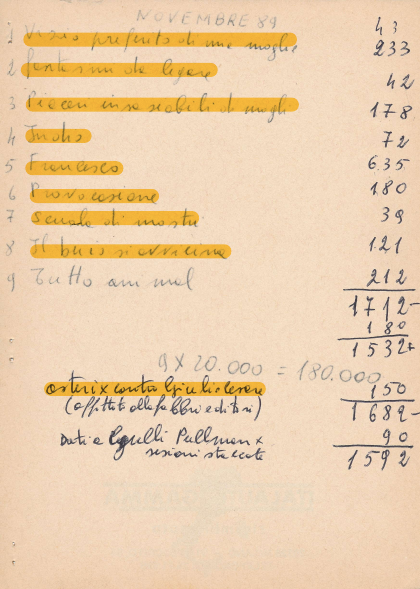 NOVEMBRE 89
43
1 Vizio preferito di mia moglie 233
2 fantasmi da legare 42
3 Piaceri insaziabili di mogli 178
4 Indio 72
5 Francesco 635
6 Provocazione 180
7 scuola di mostri 39
8 Il buio si avvicina 121
9 Tutto animal 212
1712-
180
1532+
9 X 20.000 = 180.000
asterix contro Giulio Cesare 150
(affittato alla fabbri editori) 1682-
Dati a Pullman x 90
sezioni staccate 1592